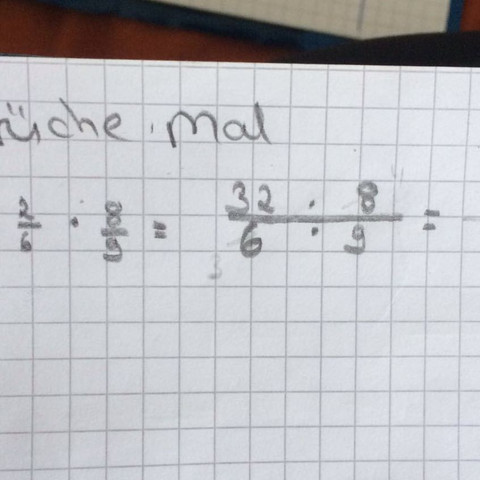 üche mal
2/6 · 8/9 = 32 : 8 / 6 : 9 =
3